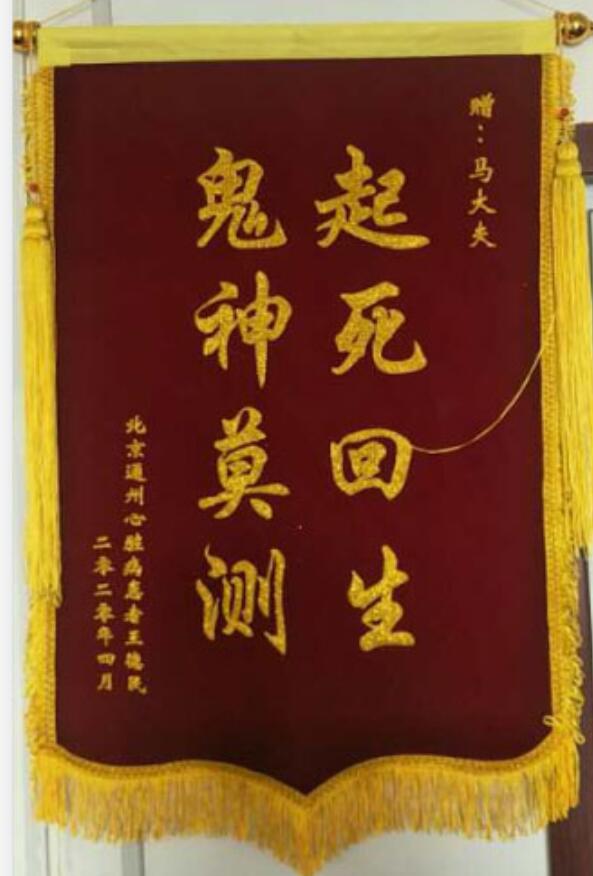 赠：马大夫
起死回生
鬼神莫测
北京通州心脏病患者王德民
二零二零年四月